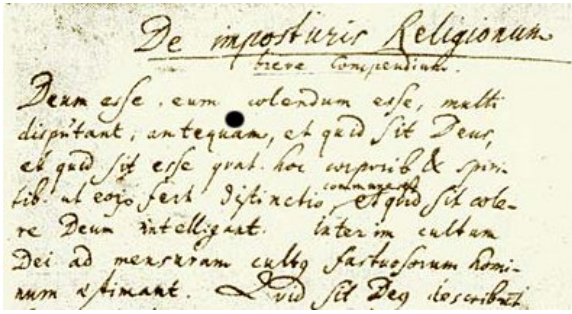 De imposturis Religionum
breve Compendium.
Deum esse, eum colendum esse, multi
disputant, antequam, et quid sit Deus,
et quid sit esse, quat. hoc corporib & spiri-
tib. ut eorq fert distinctio, commune est
et quid sit cole-
re Deum intelligant. Interim cultum
Dei ad mensuram cultq fastuosorum homi-
num æstimant. Quid sit Deq describunt